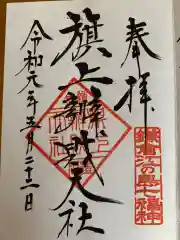 奉拝
鎌倉江の島七福神
旗上辨財天社
令和元年五月二十二日